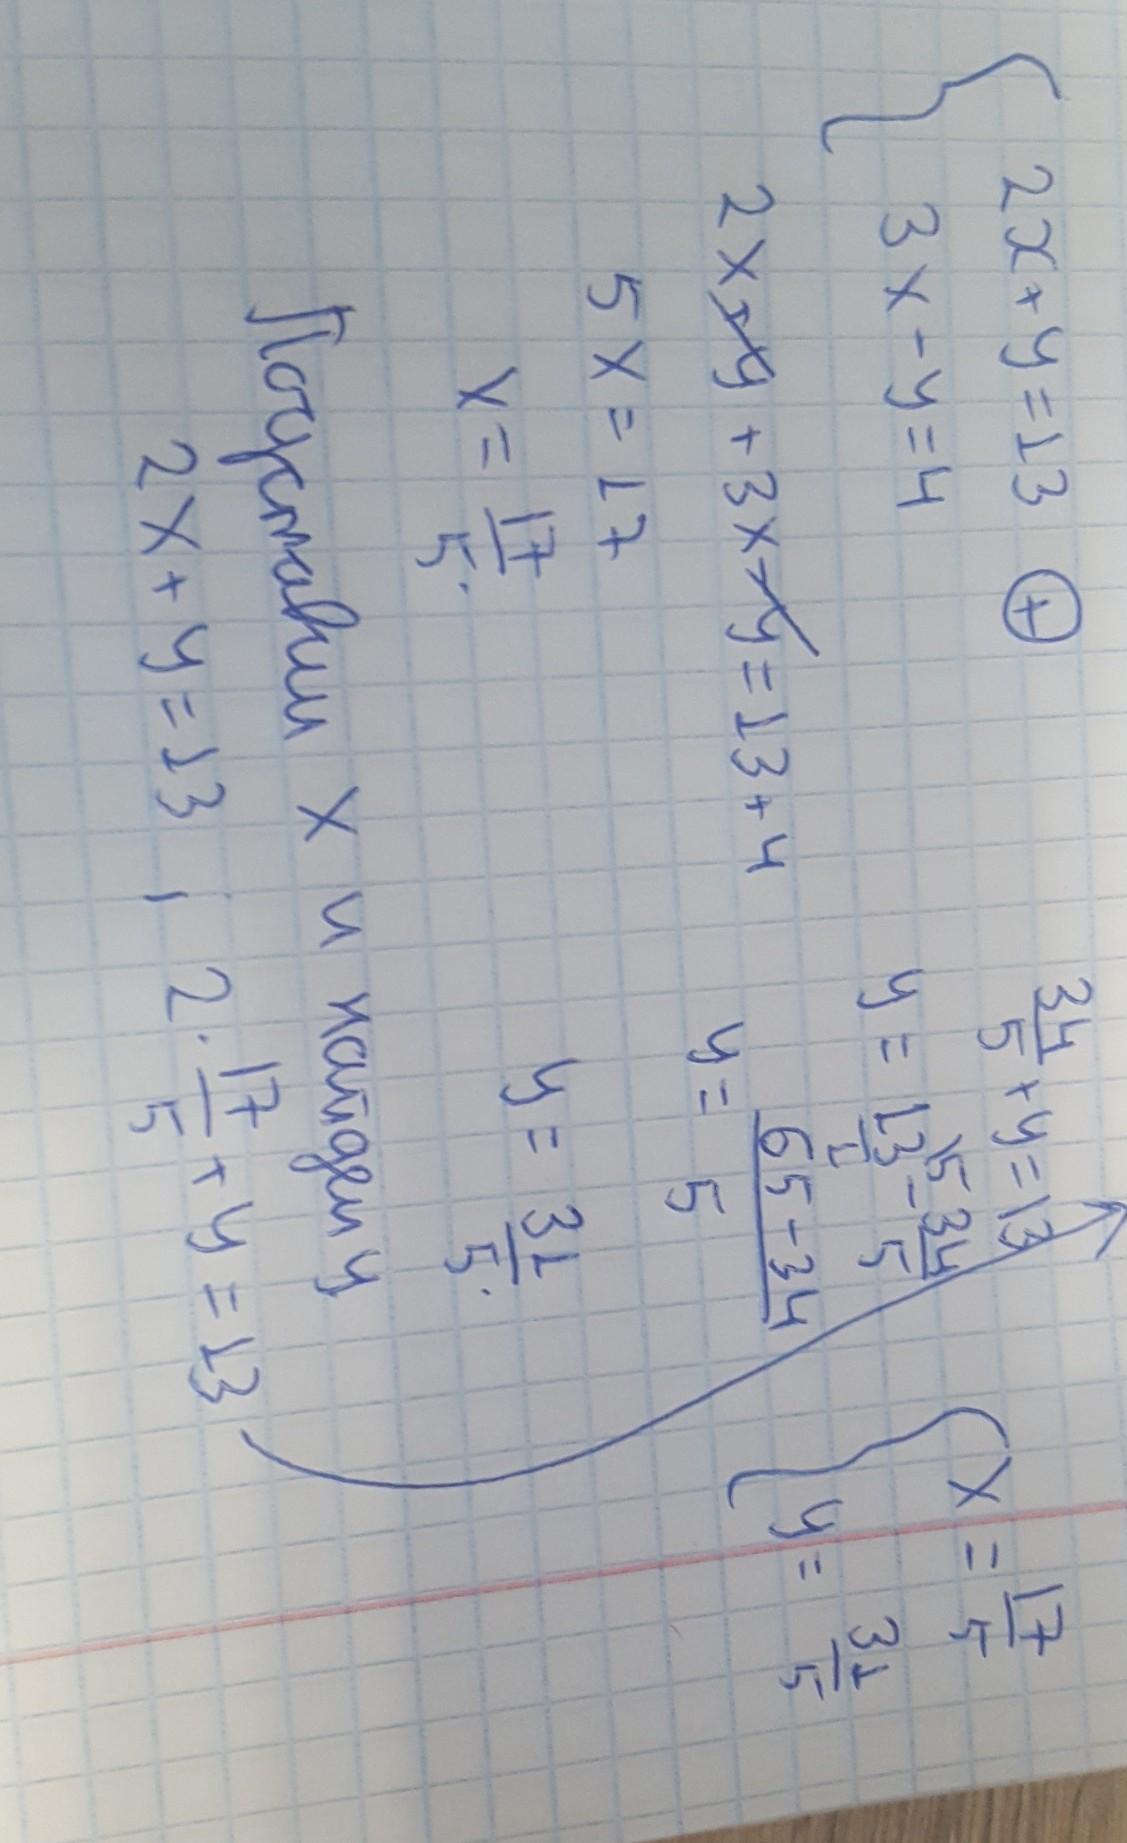 2x+y=13 (+)
3x-y=4
2x+y+3x-y=13+4
5x=17
x=17/5.
Подставим x и найдем y
2x+y=13, 2·17/5+y=13
34/5+y=13
y=13/1⁵-34/5
y=65-34/5
y=31/5.
x=17/5
y=31/5